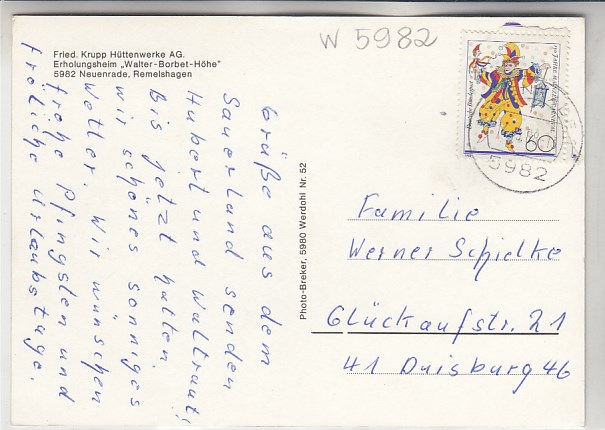 Fried. Krupp Hüttenwerke AG.
Erholungsheim „Walter-Borbet-Höhe"
5982 Neuenrade, Remelshagen
W 5982
Deutsche Bundespost
150 JAHRE MAINZER KARNEVAL
60
5982
Grüße aus dem
Sauerland senden
Hubert und Waltraut!
Bis jetzt hatten
wir schönes sonniges
Wetter. Wir wünschen
frohe Pfingsten und
fröliche Urlaubstage.
Photo-Breker, 5980 Werdohl Nr. 52
Familie
Werner Schielke
Glückaufstr. 21
41 Duisburg 46